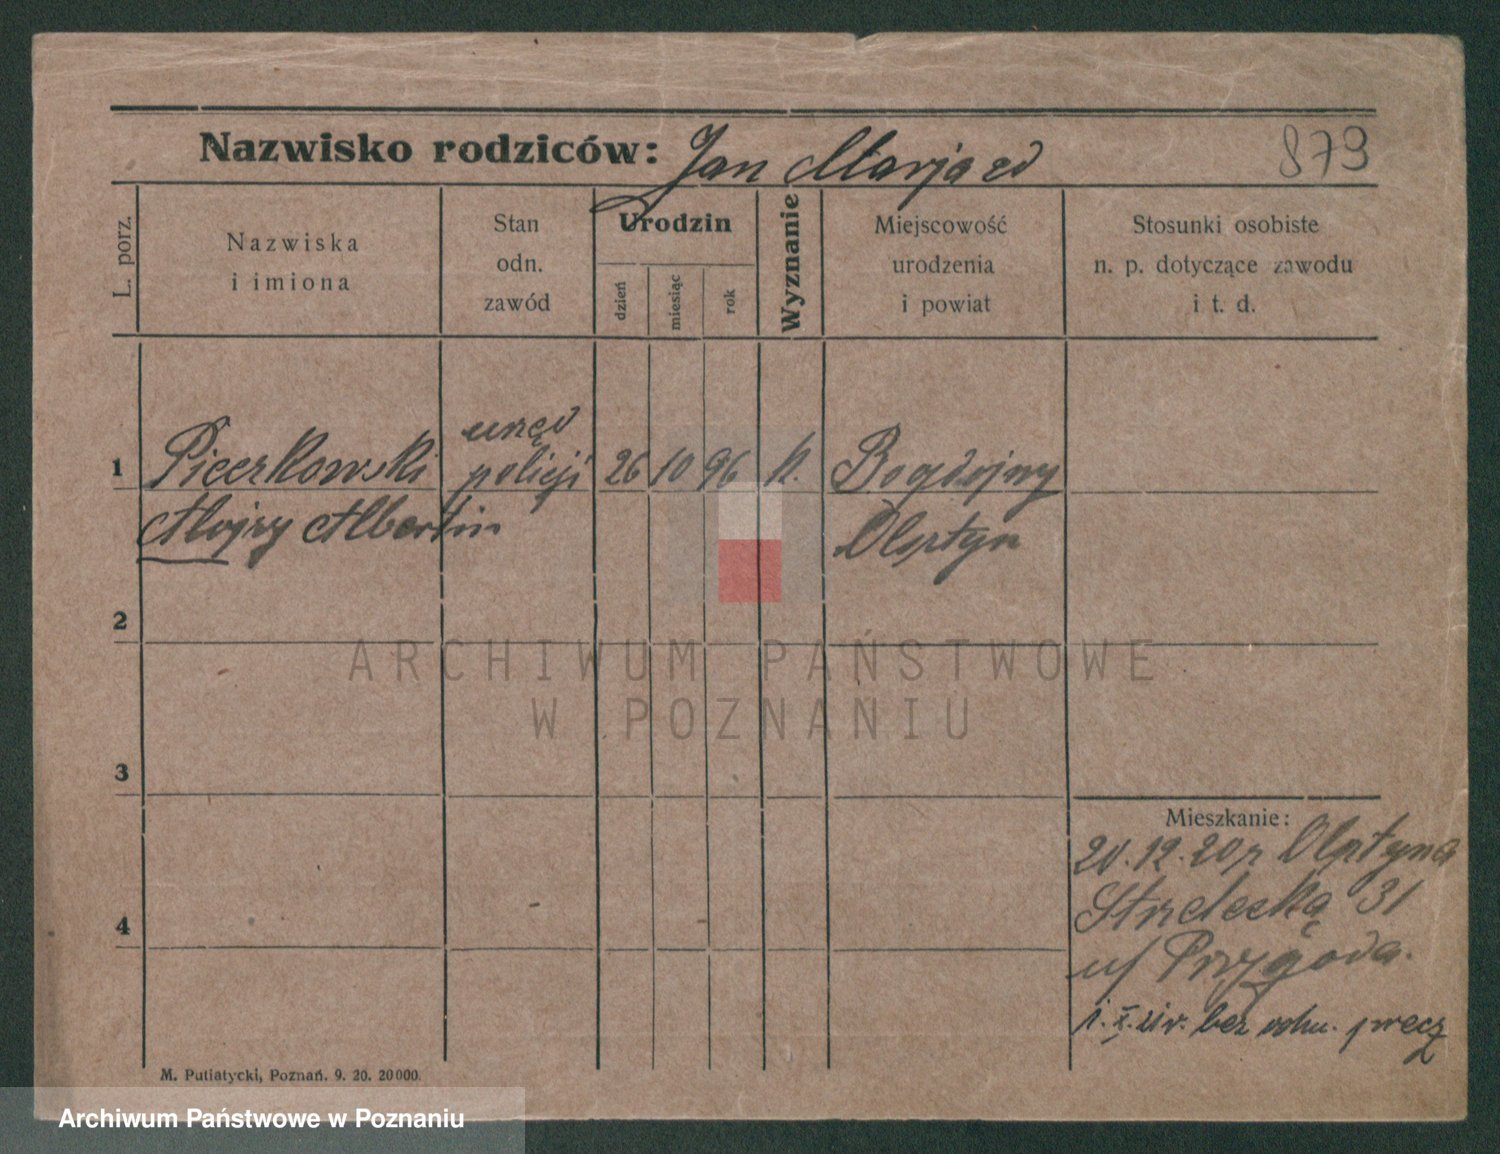 Nazwisko rodziców: Jan Marja zd 879
L. porz.
Nazwiska i imiona
Stan odn. zawód
Urodzin
dzień
miesiąc
rok
Wyznanie
Miejscowość urodzenia i powiat
Stosunki osobiste n. p. dotyczące zawodu i t. d.
urzęd
1 Pieczkowski policji 26 10 96 k. Bogdajny
Alojzy Albertin Olsztyn
2
ARCHIWUM PAŃSTWOWE
W POZNANIU
3
Mieszkanie:
20.12.20 z Olsztyna
Strzelecką 31
4
u/ Przygoda.
1. X. 21 r. bez precz
M. Putiatycki, Poznań. 9. 20. 20000.
Archiwum Państwowe w Poznaniu